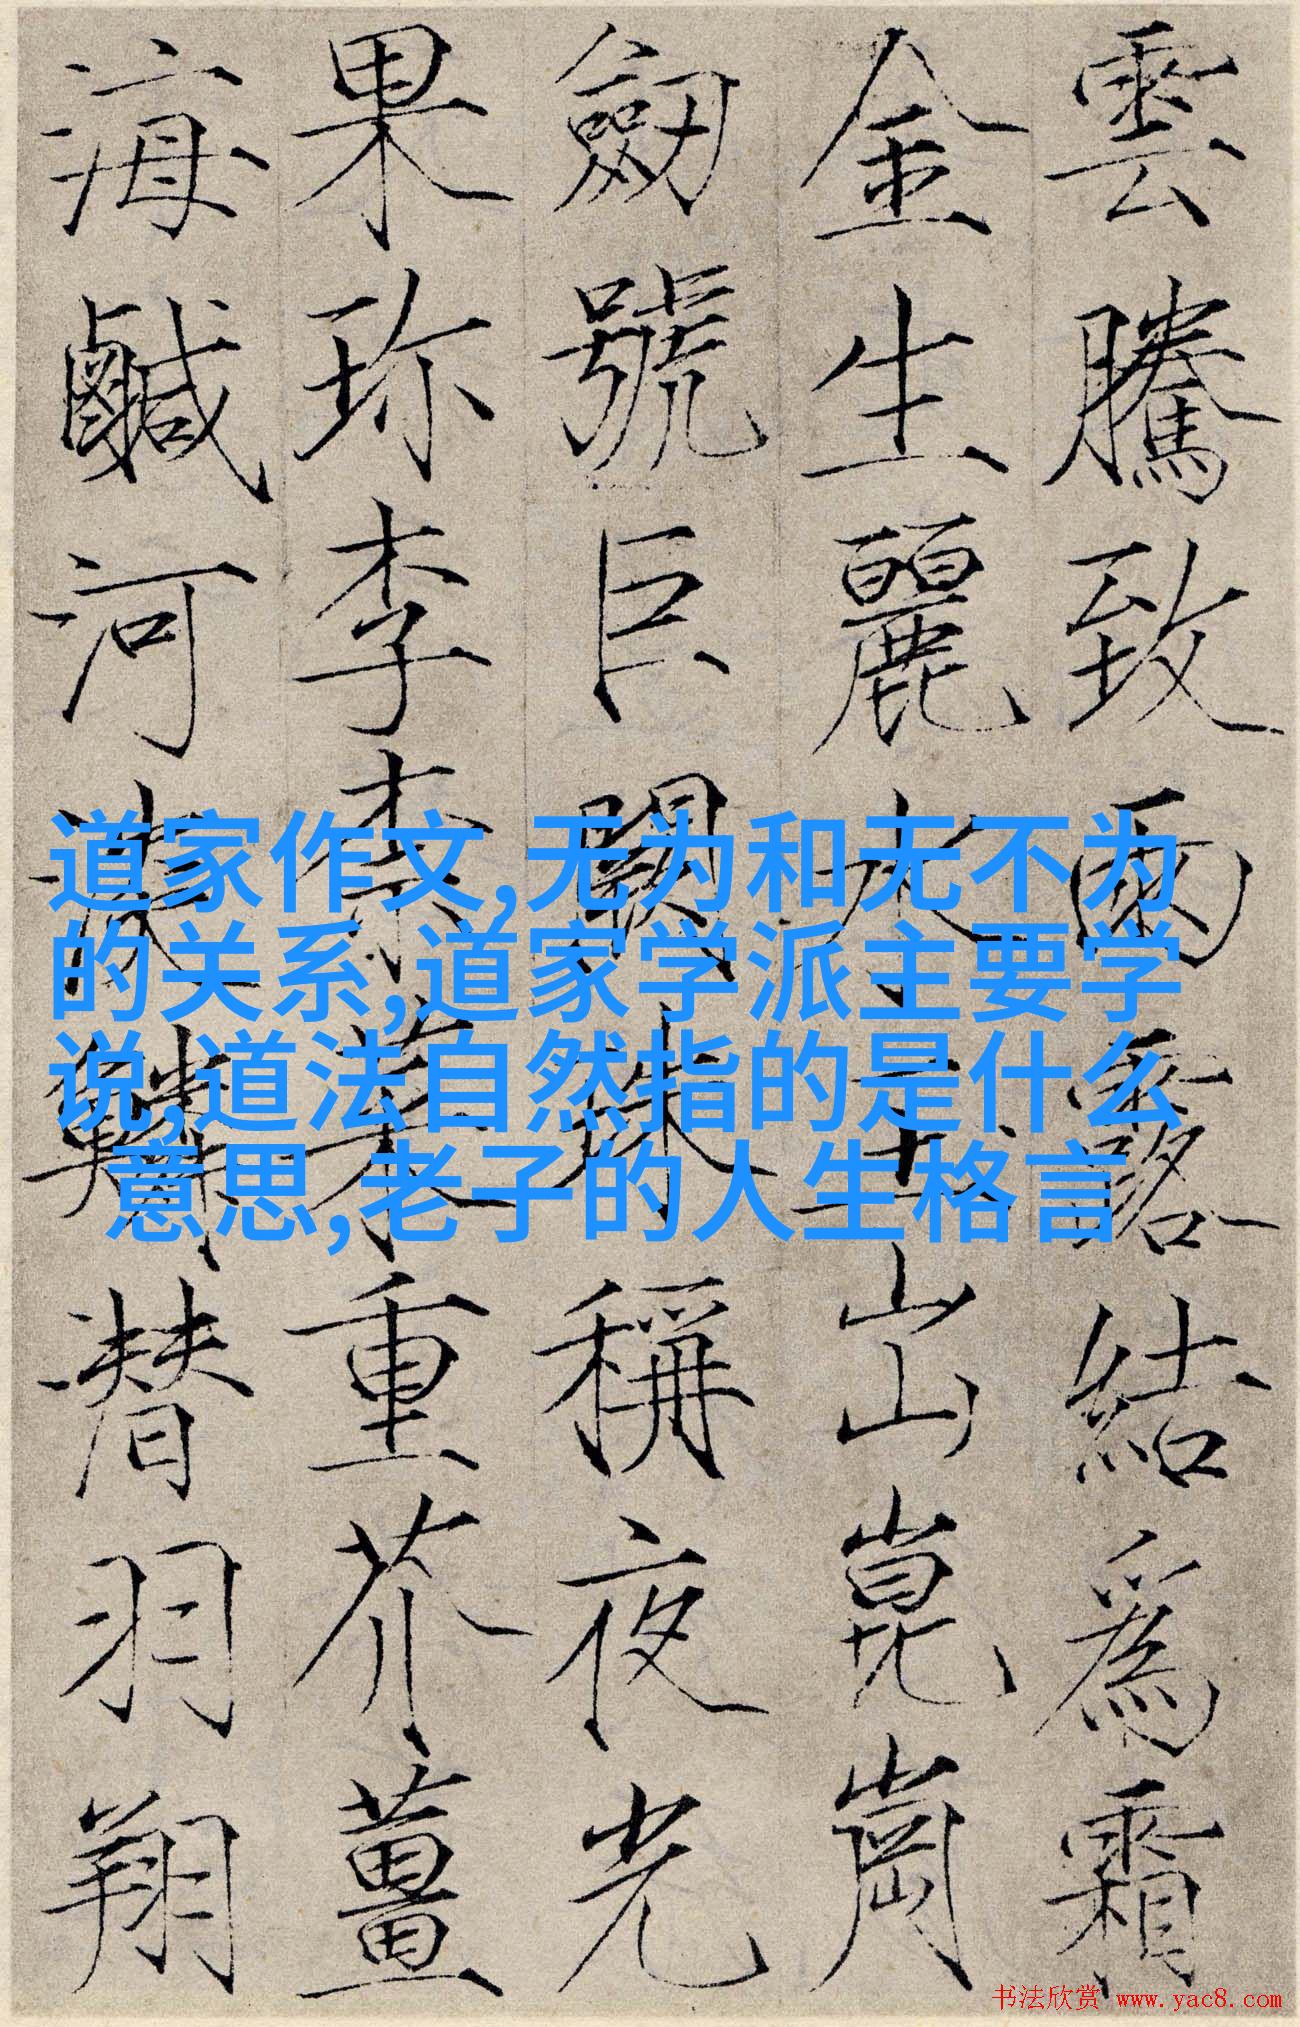 雲騰致雨露結爲霜
金生麗水玉出崑崗
劒號巨闕珠稱夜光
果珎李柰菜重芥薑
海鹹河淡鱗潜羽翔
道家作文,无为和无不为
的关系,道家学派主要学
说,道法自然指的是什么
意思,老子的人生格言
书法欣赏 www.yac8.com